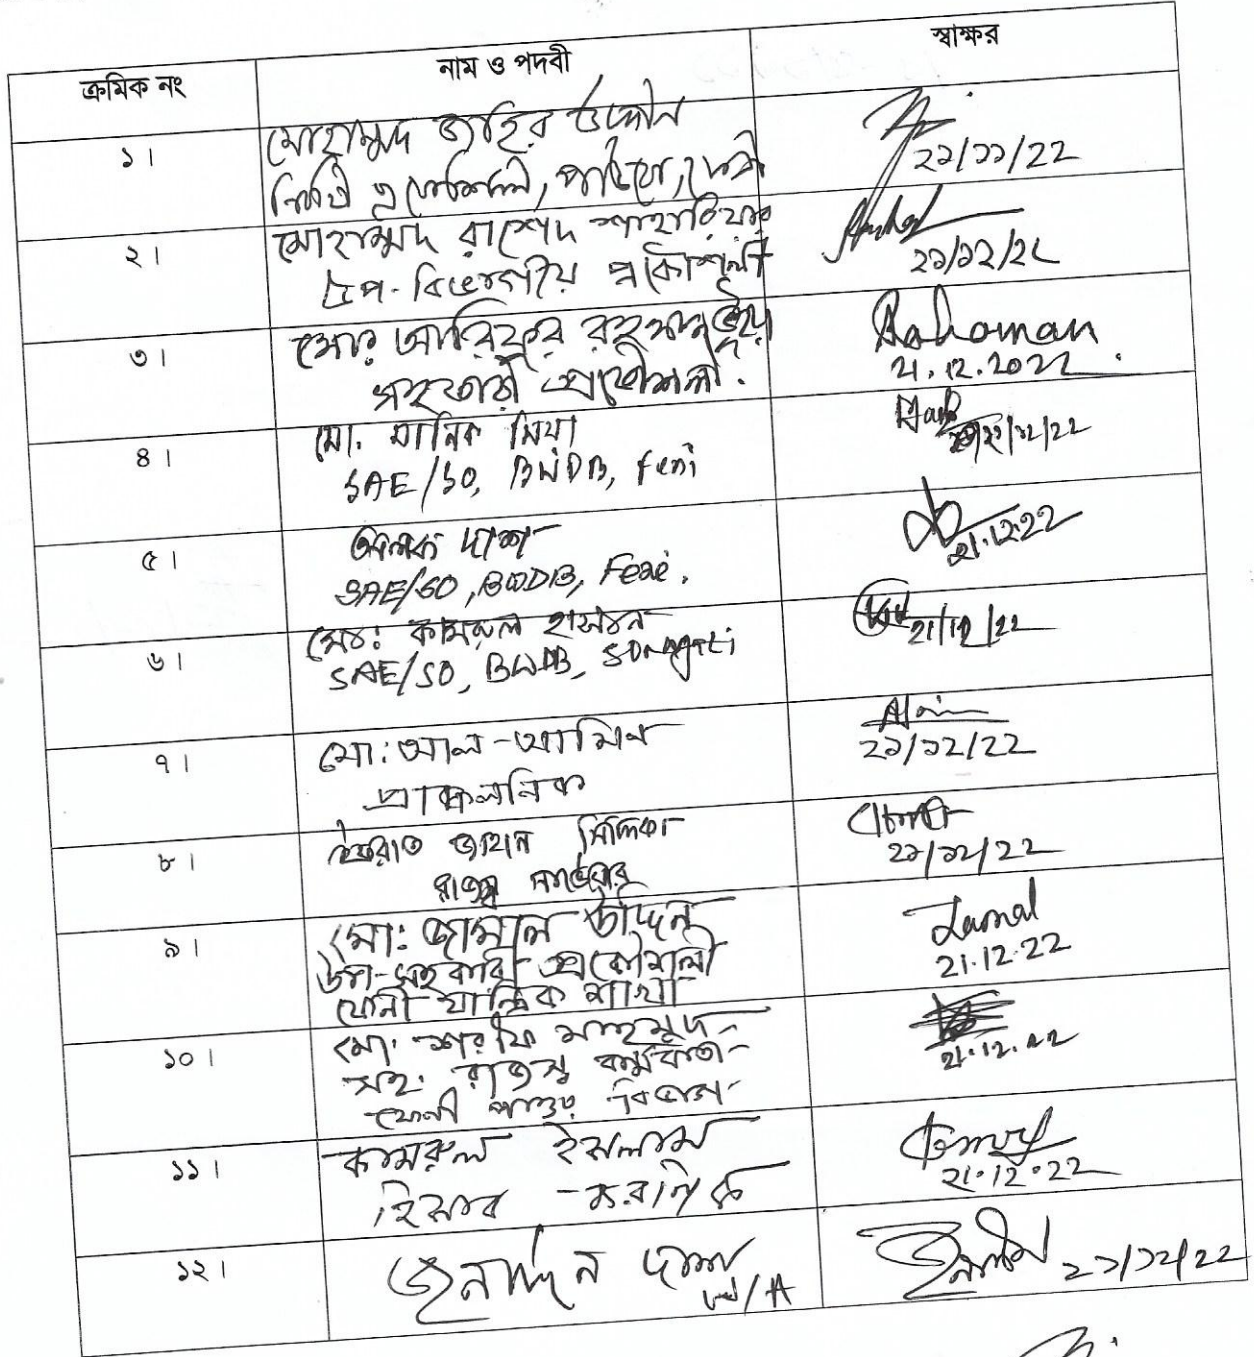 ক্রমিক নং নাম ও পদবী স্বাক্ষর
১। মোহাম্মদ জহির উদ্দীন
নির্বাহী প্রকৌশলী, পাউবো, ফেনী
২১/১১/22
২। মোহাম্মদ রাশেদ শাহারিয়ার
উপ-বিভাগীয় প্রকৌশলী
২১/১২/২২
৩। মোঃ আরিফুর রহমান ভূঁইয়া
সহকারী প্রকৌশলী.
Rahaman
21.12.2022
৪। মো. মানিক মিয়া
SAE/SO, BWDB, Feni
২১/১২/22
৫। অলক দাশ
SAE/SO, BWDB, Feni.
21.12.22
৬। মোঃ কামরুল হাসান
SAE/SO, BWDB, Sonagazi
21/12/22
৭। মো: আল-আমিন
প্রাক্কলনিক
২১/১২/22
৮। জাহান মল্লিকা
রাজস্ব সার্ভেয়ার
২১/১২/22
৯। মো: জামাল উদ্দিন
উপ-সহকারী প্রকৌশলী
ফেনী যান্ত্রিক শাখা
Jamal
21.12.22
১০। মো. শরীফ মাহমুদ
সহ. রাজস্ব কর্মকর্তা
ফেনী পওর বিভাগ
21.12.22
১১। কামরুল ইসলাম
হিসাব করণিক
21.12.22
১২। জনার্দ্দন দাশ
W/A
২১/১২/22